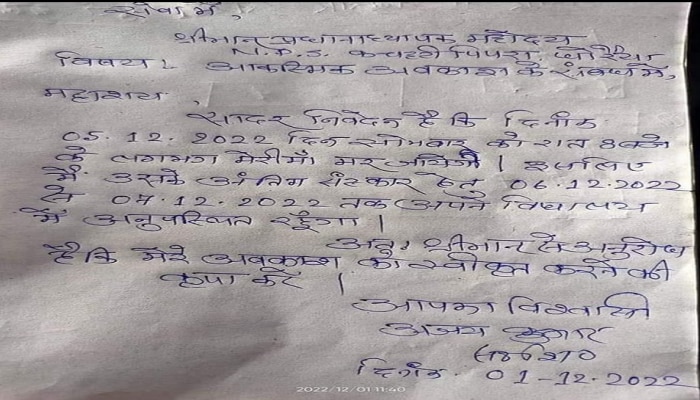 सेवा में,
श्रीमान प्रधानाध्यापक महोदय
N.P.S. कचहरी पिपरा
विषय:- आकस्मिक अवकाश के संबंध में,
महाशय,
सादर निवेदन है कि दिनांक
05.12.2022 दिन सोमवार को रात 8 बजे
के लगभग मेरी माँ मर जायेगी। इसलिए
मैं उसके अंतिम संस्कार हेतु 06.12.2022
से 07.12.2022 तक अपने विद्यालय
में अनुपस्थित रहूँगा।
अतः श्रीमान से अनुरोध
है कि मेरे अवकाश को स्वीकृत करने की
कृपा करें।
आपका विश्वासी
अजय कुमार
दिनांक- 01-12.2022
2022/12/01 11:40